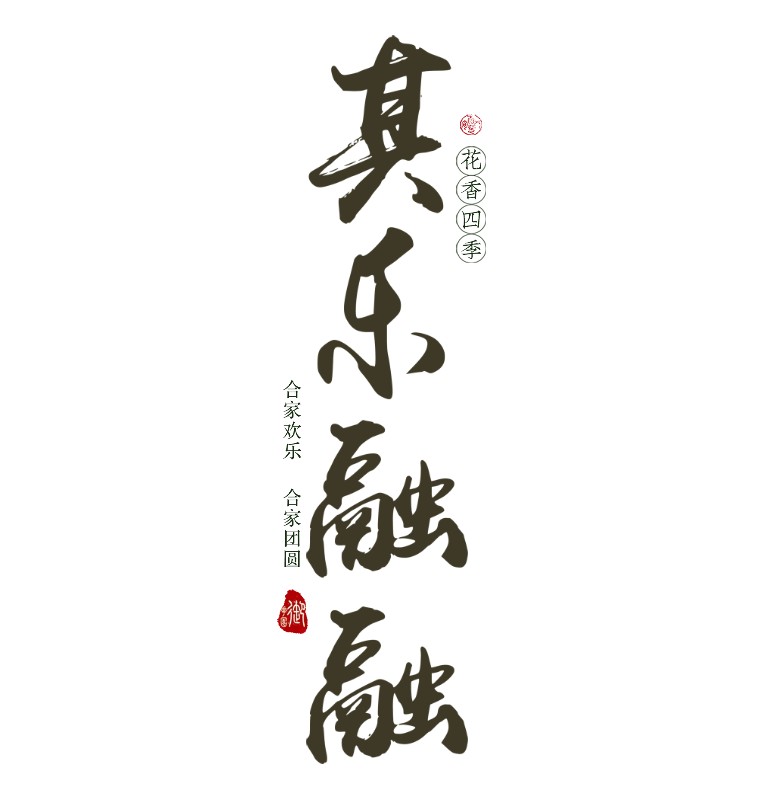 花香四季
其乐融融
合家欢乐 合家团圆